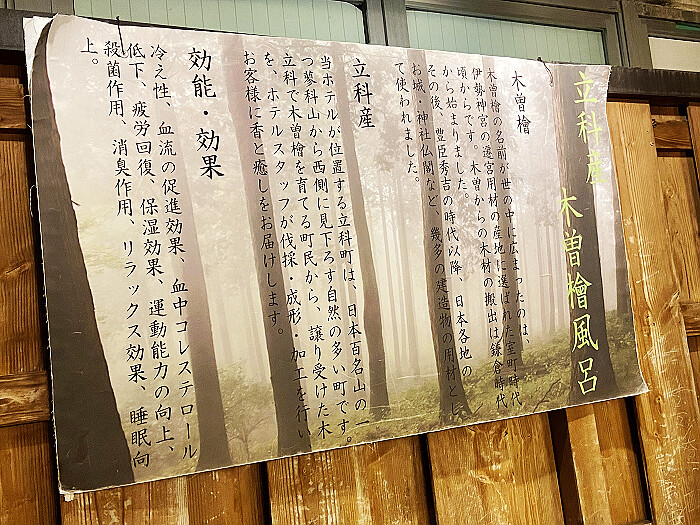 立科産 木曽檜風呂
木曽檜
木曽檜の名前が世の中に広まったのは、
伊勢神宮の遷宮用材の産地に選ばれた室町時代
頃からです。木曽からの木材の搬出は鎌倉時代
から始まりました。
その後、豊臣秀吉の時代以降、日本各地の
お城・神社仏閣など、幾多の建造物の用材とし
て使われました。
立科産
当ホテルが位置する立科町は、日本百名山の一
つ蓼科山から西側に見下ろす自然の多い町です。
立科で木曽檜を育てる町民から、譲り受けた木
を、ホテルスタッフが伐採・成形・加工を行い
お客様に香と癒しをお届けします。
効能・効果
冷え性、血流の促進効果、血中コレステロール
低下、疲労回復、保湿効果、運動能力の向上、
殺菌作用、消臭作用、リラックス効果、睡眠向
上。